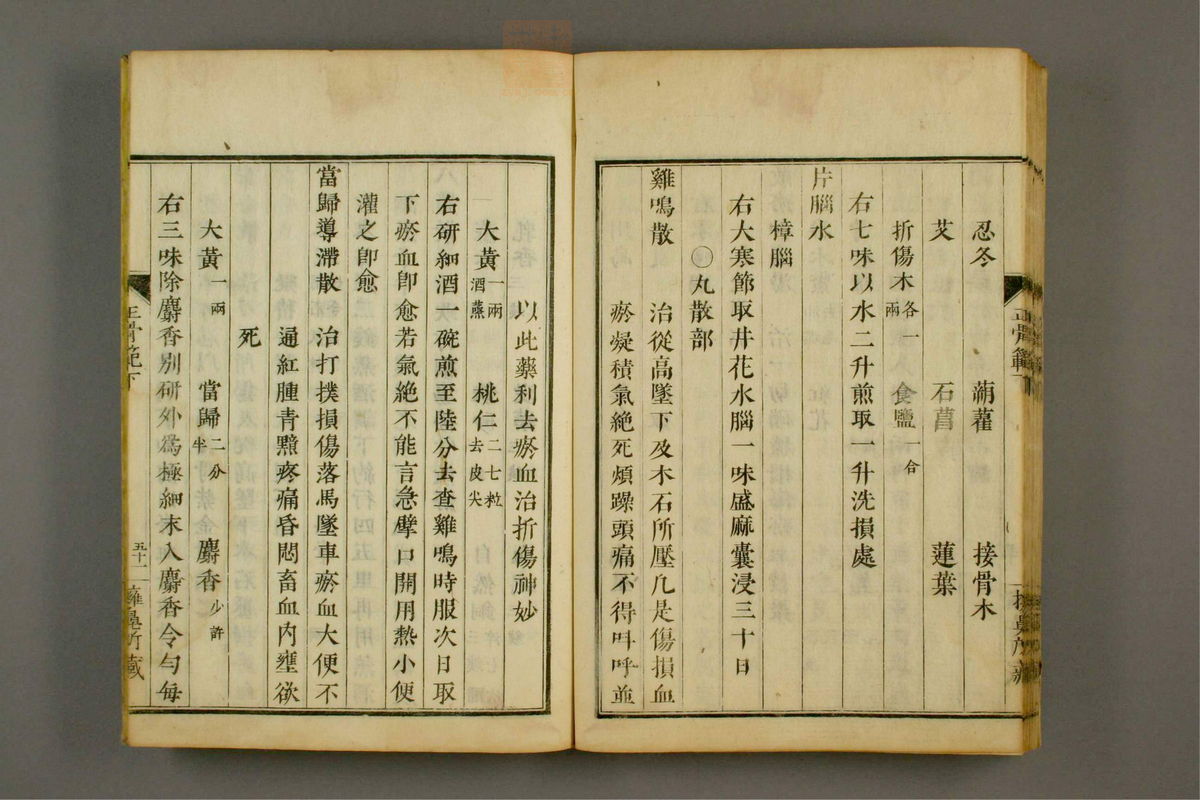 忍冬 蒴藋 接骨木
艾 石菖 蓮葉
折傷木各一兩 食鹽一合
右七味以水二升煎取一升洗損處
片腦水
樟腦
右大寒節取井花水腦一味盛麻囊浸三十日
○丸散部
雞鳴散 治從高墜下及木石所壓凡是傷損血
瘀凝積氣絕死煩躁頭痛不得呌呼並
以此藥利去瘀血治折傷神妙
大黃一兩酒蒸 桃仁二七粒去皮尖
右研細酒一碗煎至陸分去查雞鳴時服次日取
下瘀血卽愈若氣絕不能言急擘口開用熱小便
灌之卽愈
當歸導滯散 治打撲損傷落馬墜車瘀血大便不
通紅腫青黯疼痛昏悶畜血內壅欲
死
大黃一兩 當歸二分半 麝香少許
右三味除麝香別研外爲極細末入麝香令勻每
正骨範下
五十一